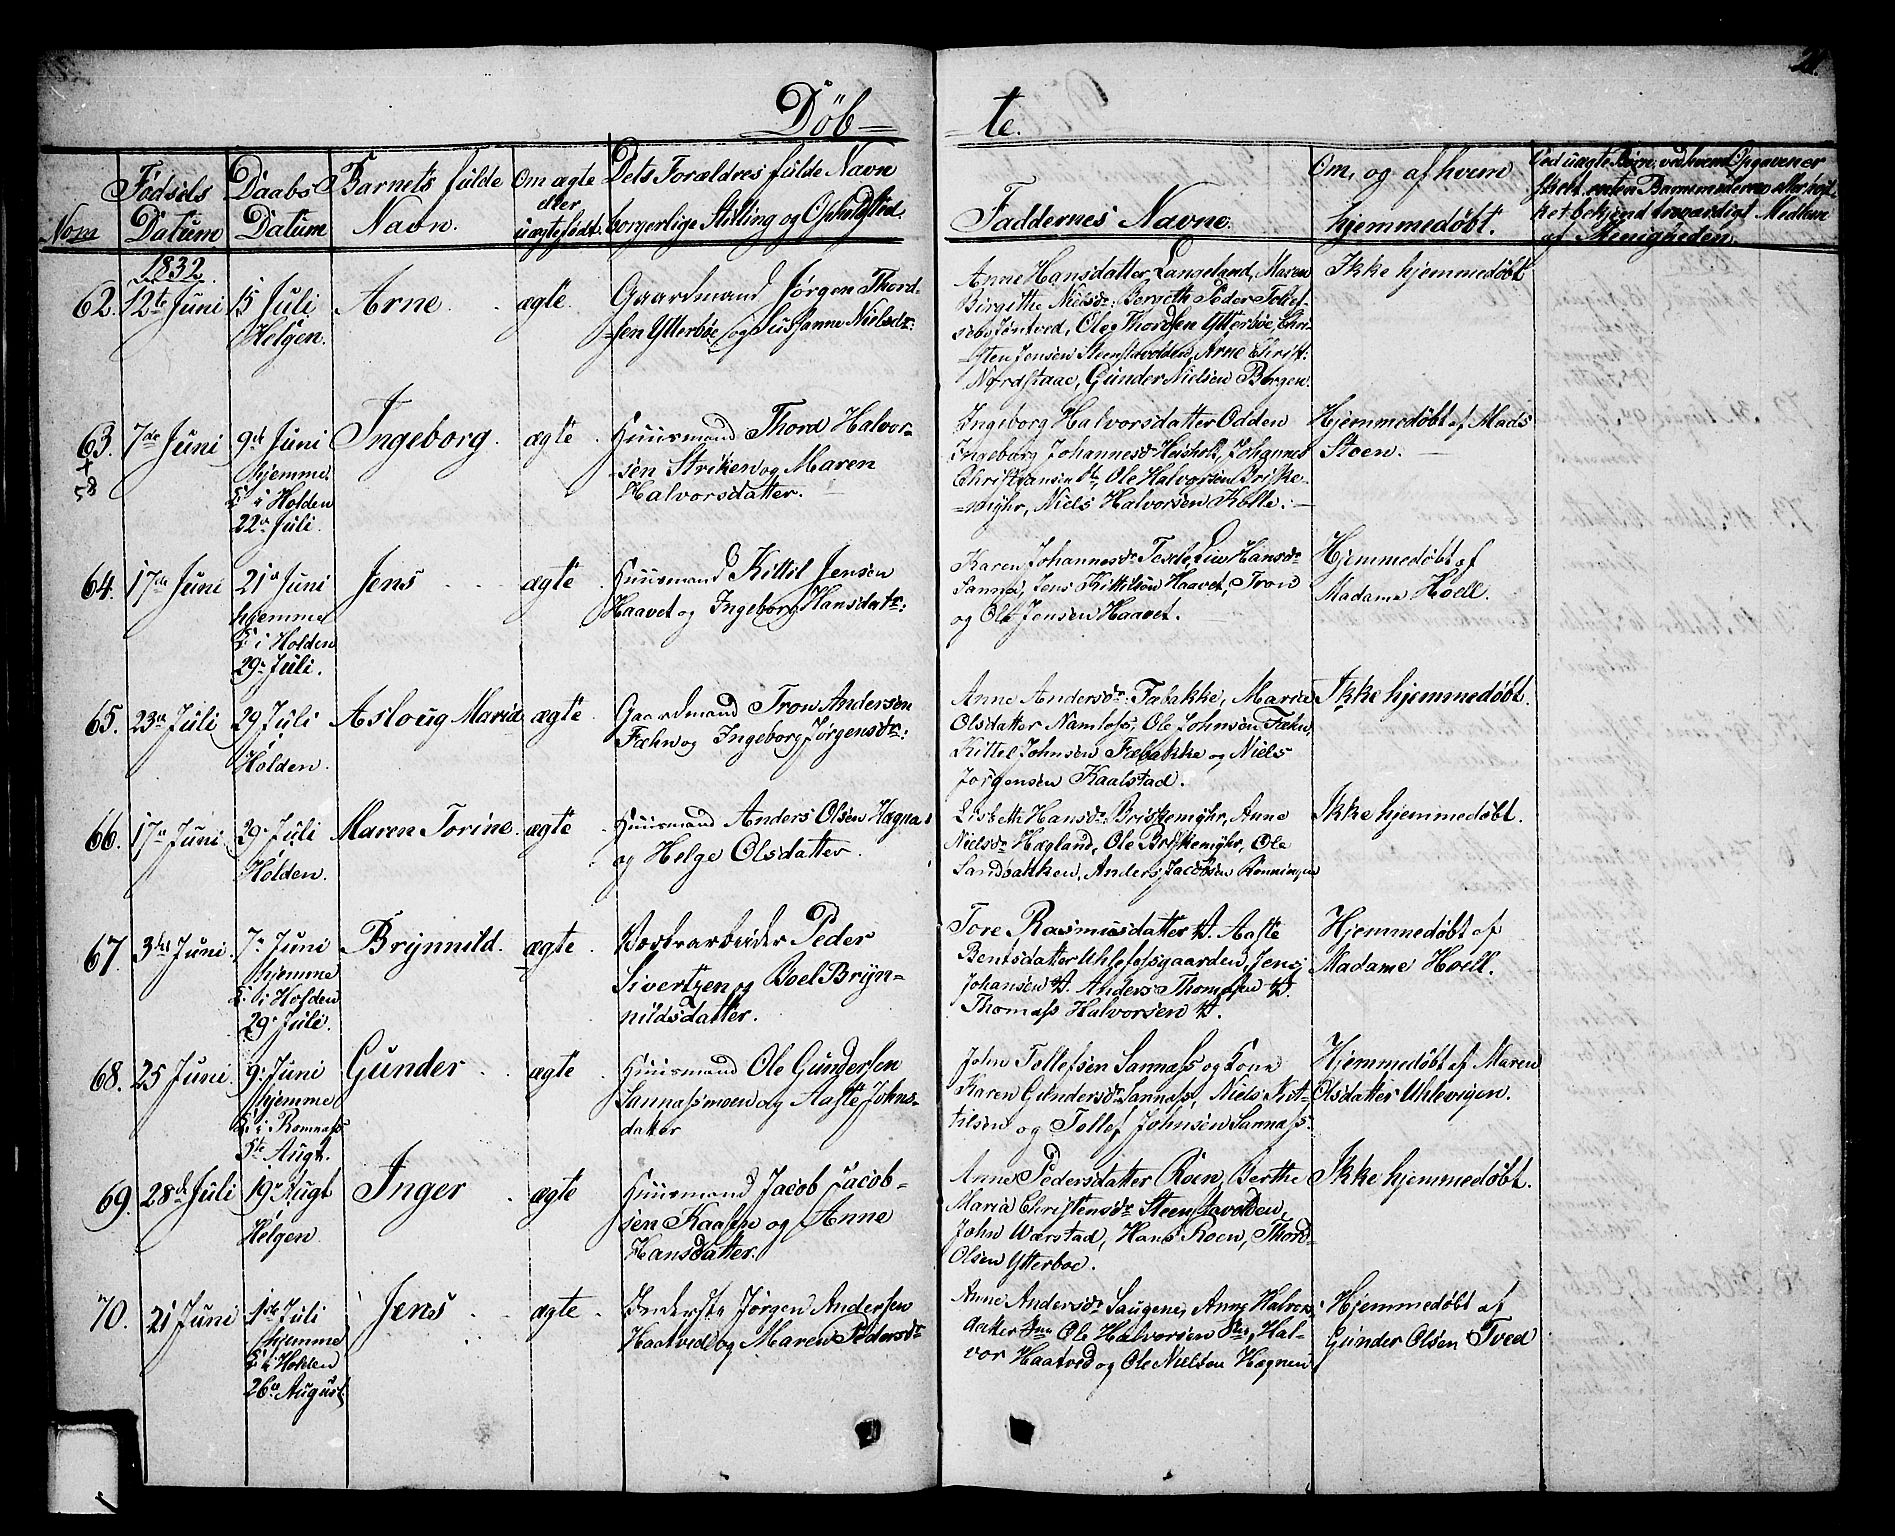 21.
Döbte.
Nom
Fødsels Datum
Daabs Datum
Barnets fulde Navn.
Om ægte eller uægtefödt.
Dets Forældres fulde Navn borgerlige Stilling og Opholdsted.
Faddernes Navne.
Om, og af hvem hjemmedøbt.
1832.
62. 12te Juni
15 Juli
Helgen.
Arne
ægte.
Gaardmand Jørgen Thord-
sen Ytterböe og Susanne Nielsdr:
Anne Hansdatter Langeland, Maren
Birgithe Nielsdr: Bergeth Peder
Jöntved, Ole Thordsen Ytterböe, Chri-
sten Jensen Steenstavolden, Arne Christ:
Nordstaae, Gunder Nielsen Borgen.
Ikke hjemmedøbt
63. 7de Juni
+
58
9de Juni
hjemme
i Holden
22de Juli.
Ingeborg.
ægte
Huusmand Thord Halvor-
sen Striken og Maren
Halvorsdatter.
Ingeborg Halvorsdatter Odden
Ingeborg Johannesdr Heisholt, Johannes
Christiansen Ole Halvorsen Briske-
myhr, Niels Halvorsen Kolle.
Hjemmedøbt af Mads
Stoen.
64. 17de Juni
21de Juni
hjemme
i Holden
29de Juli.
Jens
ægte
Huusmand Kittil Jensen
Haavet og Ingeborg Hansdatr:
Karen Johannesdr Liv Hansdr
Sannes, Jens Kittilsen Haavet, Tron
og Ole Jensen Haavet.
Hjemmedøbt af
Madame Hoell.
65. 23de Juli
29 Juli
Holden.
Asloug Maria
ægte
Gaardmand Tron Andersen
Fæhn og Ingeborg Jørgensdr:
Anne Andersdr: Fæbakke, Maria
Olsdatter Namløss, Ole Johnsen Fæhn,
Kittel Johnsen Fæbakke og Niels
Jörgensen Kaalstad.
Ikke hjemmedøbt.
66. 17de Juni
29 Juli
Holden.
Maren Torine.
ægte
Huusmand Anders Olsen Hægna
og Helge Olsdatter.
Lisbeth Hansdr Briskemyhr, Anne
Nielsdr Hægland, Ole Briskemyhr, Ole
Sandbakken, Anders Jacobsen Rönningen
Ikke hjemmedøbt.
67. 3die Juni
7de Juni
hjemme
i Holden
29de Juli.
Brynnild.
ægte
Værkarbeider Peder
Sivertzen og Boel Bryn-
nildsdatter.
Tore Rasmusdatter V. Aaste
Bentsdatter Uhlefossgaarden, Jens
Johansen V. Anders Thomesen V.
Thomass Halvorsen V.
Hjemmedøbt af
Madame Hoell.
68. 25 Juni
9 Juni
hjemme
i Romnæss
5te Augt.
Gunder
ægte
Huusmand Ole Gundersen
Sannæssmoen og Aaste Johns-
datter
John Tollefsen Sannæss og Kone
Karen Gundersdr Sannæss, Niels Kit-
tilsen og Tollef Johnsen Sannæss.
Hjemmedøbt af Maren
Olsdatter Uhlevigen.
69. 28de Juli
19de Augt
Helgen
Inger
ægte
Huusmand Jacob Jacob-
sen Kaasen og Anne
Hansdatter.
Anne Pedersdatter Roen, Berthe
Maria Christensdr Steenstavolden,
John Værstad, Hans Roen, Thord
Olsen Ytterboe.
Ikke hjemmedøbt.
70. 21 Juni
1de Juli
hjemme
i Holden
26de August
Jens
ægte
Inderste Jørgen Andersen
Haatved og Maren Pedersdr
Anne Andersdr Saugene, Anne Halvors-
datter Ole Halvorsen Hal-
vor Haatved og Ole Nielsen Hægnen
Hjemmedøbt af
Gunder Olsen Tved